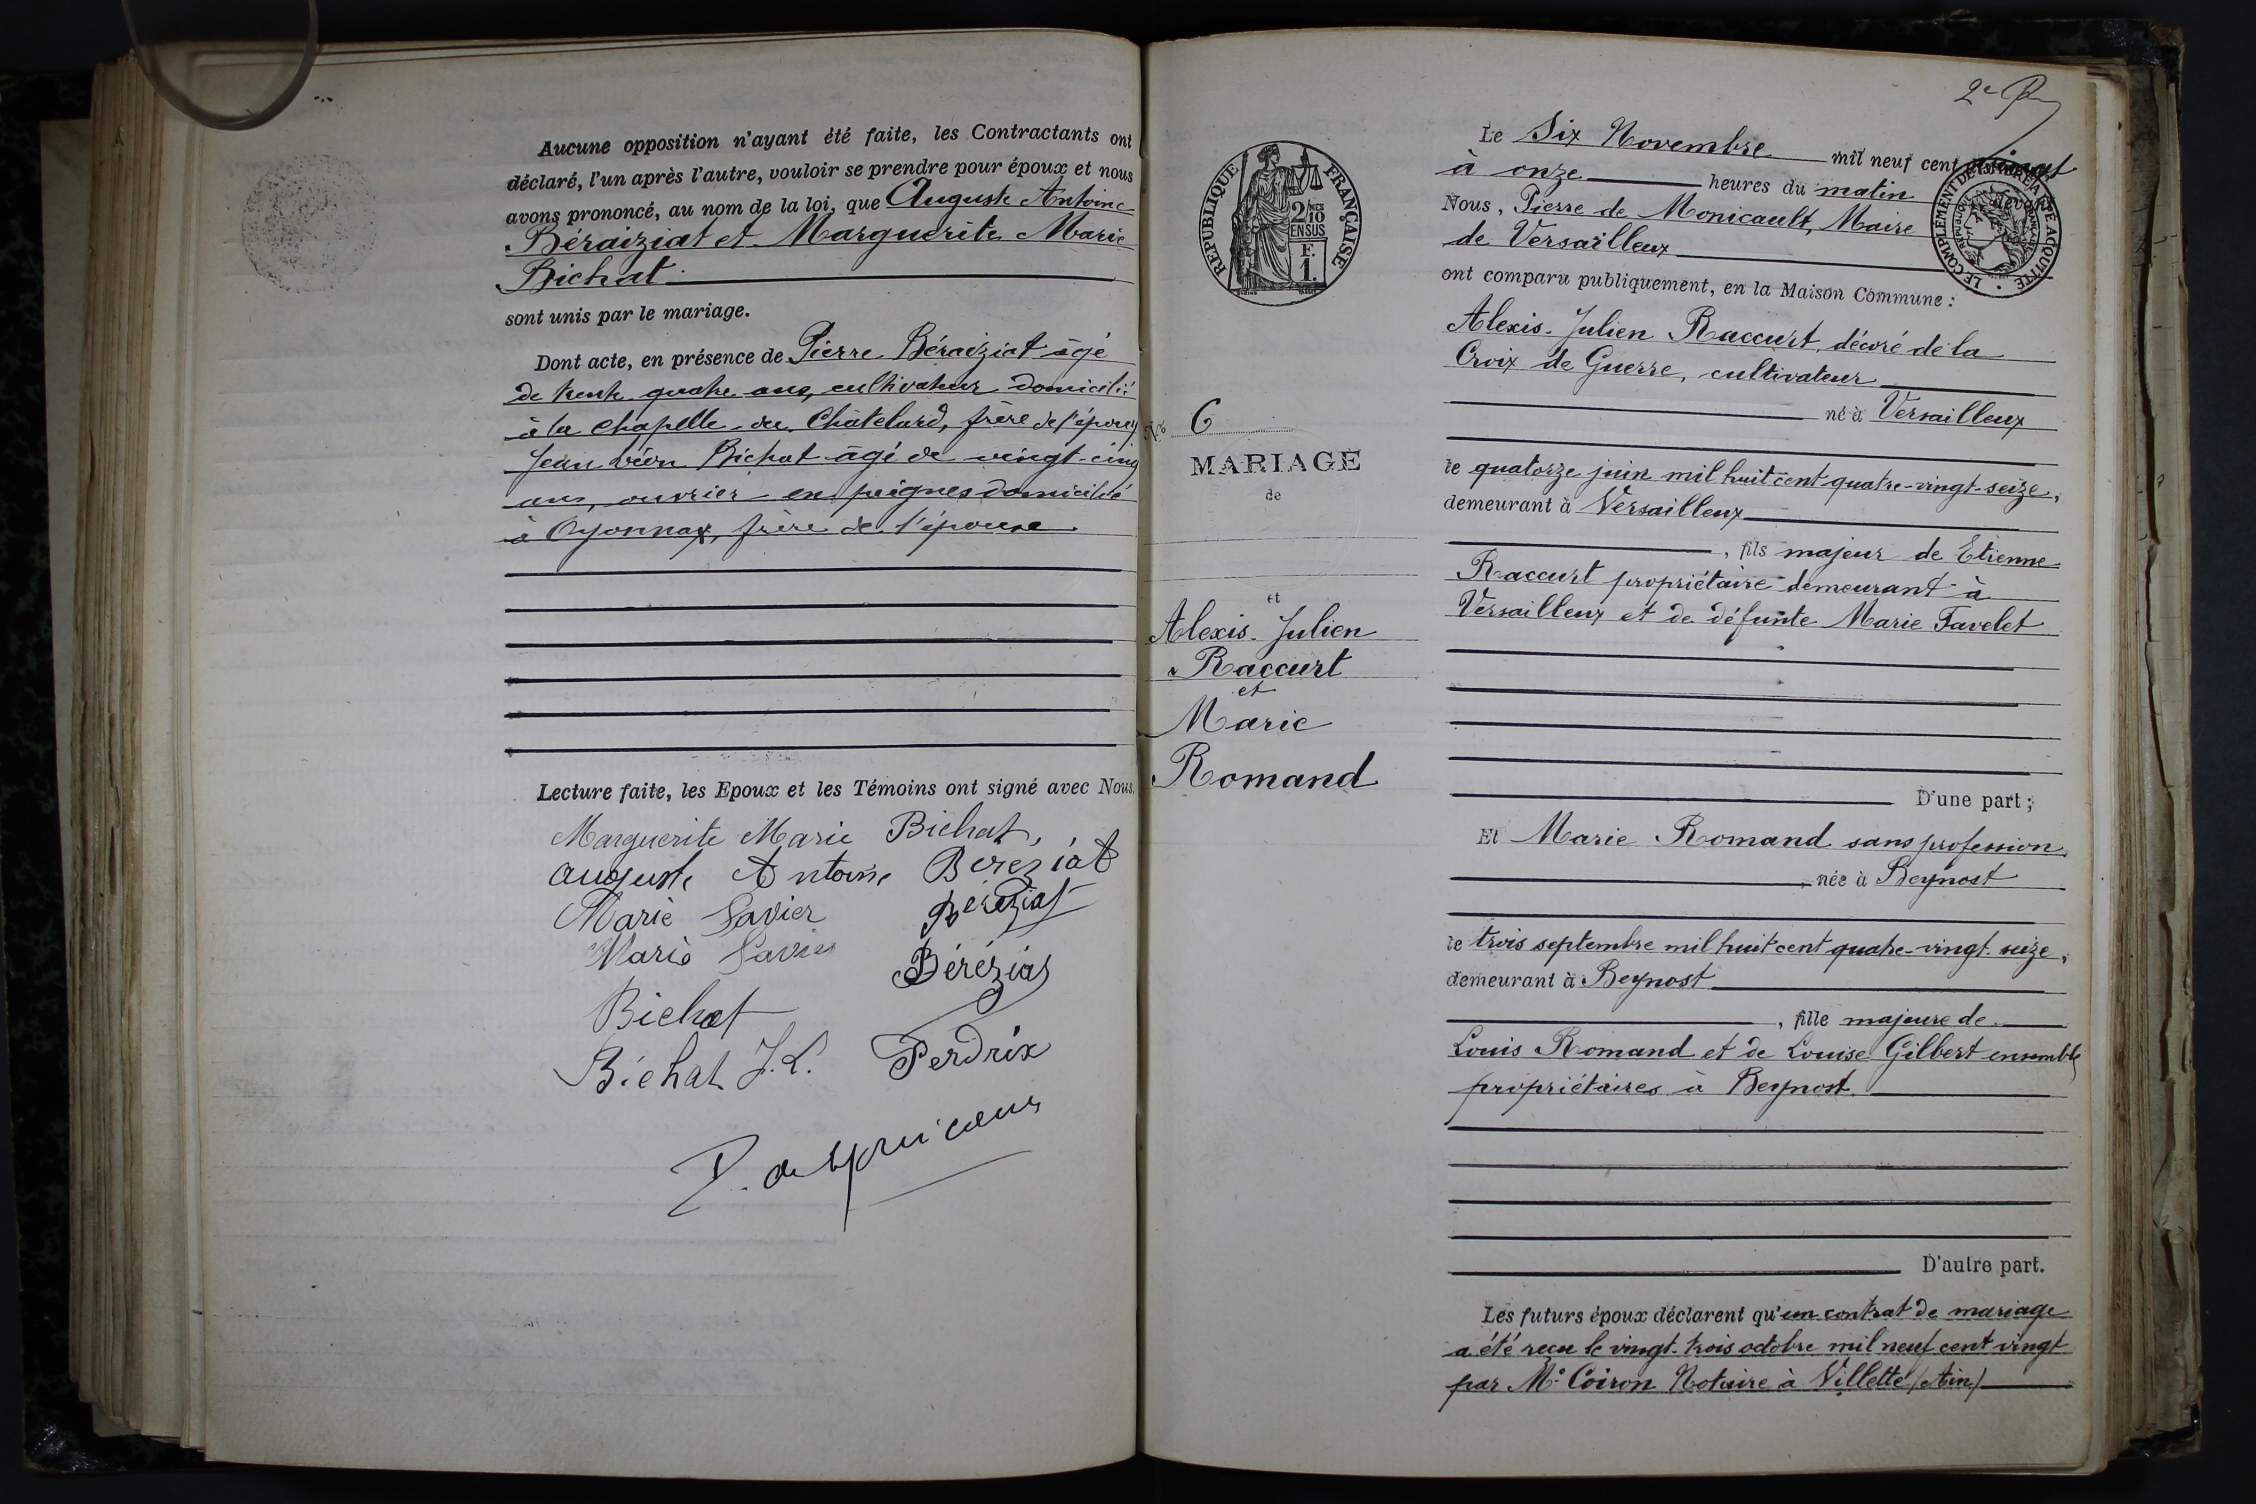 Aucune opposition n'ayant été faite, les Contractants ont
déclaré, l'un après l'autre, vouloir se prendre pour époux et nous
avons prononcé, au nom de la loi, que Auguste Antoine
Béraiziat et Marguerite Marie
Bichat
sont unis par le mariage.
Dont acte, en présence de Pierre Béraiziat âgé
de trente quatre ans, cultivateur domicilié
à la Chapelle du Châtelard, frère de l'époux
Jean Léon Bichat âgé de vingt-cinq
ans, ouvrier en peignes domicilié
à Oyonnax, frère de l'épouse
Lecture faite, les Epoux et les Témoins ont signé avec Nous.
Marguerite Marie Bichat,
auguste Antoine Béréziat
Marie Savier Béréziat
Marie Savier
Béréziat
Bichat
Bichat J. L. Perdrix
P. de Monicault
2e
RÉPUBLIQUE FRANÇAISE
2/10
EN SUS
F.
1.
No 6
MARIAGE
de
et
Alexis-Julien
Raccurt
et
Marie
Romand
Le Six Novembre mil neuf cent vingt
à onze heures du matin devant
Nous, Pierre de Monicault, Maire
de Versailleux
LE COMPLÉMENT DE TIMBRE A ÉTÉ ACQUITTÉ
ont comparu publiquement, en la Maison Commune :
Alexis-Julien Raccurt, décoré de la
Croix de Guerre, cultivateur
né à Versailleux
le quatorze juin mil huit cent quatre-vingt-seize,
demeurant à Versailleux
, fils majeur de Etienne
Raccurt propriétaire demeurant à
Versailleux et de défunte Marie Favelet
D'une part ;
Et Marie Romand sans profession
, née à Beynost
le trois septembre mil huit cent quatre-vingt seize,
demeurant à Beynost
, fille majeure de
Louis Romand et de Louise Gilbert ensemble
propriétaires à Beynost.
D'autre part.
Les futurs époux déclarent qu'un contrat de mariage
a été reçu le vingt-trois octobre mil neuf cent vingt
par Me Coiron Notaire à Villette (Ain)